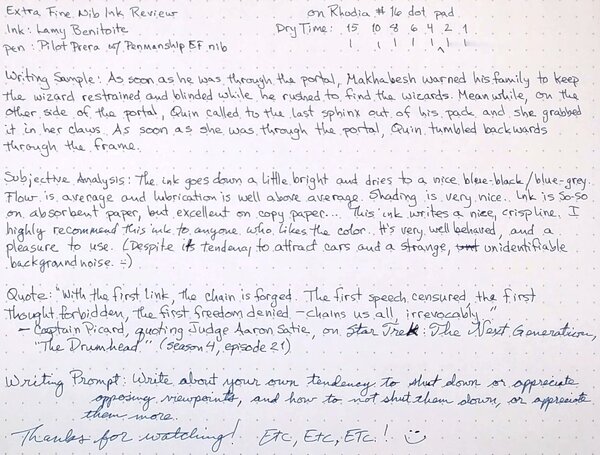 Extra Fine Nib Ink Review on Rhodia #16 dot pad.
Ink: Lamy Benitoite Dry Time: 15 10 8 6 4 2 1
pen: Pilot Prera w/ Penmanship EF nib
Writing Sample: As soon as he was through the portal, Makhabesh warned his family to keep
the wizard restrained and blinded while he rushed to find the wizards. Meanwhile, on the
other side of the portal, Quin called to the last sphinx out of his pack and she grabbed
it in her claws. As soon as she was through the portal, Quin tumbled backwards
through the frame.
Subjective Analysis: The ink goes down a little bright and dries to a nice blue-black/blue-grey.
Flow is average and lubrication is well above average. Shading is very nice. Ink is so-so
on absorbent paper, but excellent on copy paper... This ink writes a nice, crisp line. I
highly recommend this ink to anyone who likes the color. It's very well behaved, and a
pleasure to use. (Despite its tendency to attract cars and a strange, unidentifiable
background noise. =)
Quote: "With the first link, the chain is forged. The first speech censured, the first
thought forbidden, the first freedom denied – chains us all, irrevocably."
– Captain Picard, quoting Judge Aaron Satie, on Star Trek: The Next Generation,
"The Drumhead" (season 4, episode 21)
Writing Prompt: Write about your own tendency to shut down or appreciate
opposing viewpoints, and how to not shut them down, or appreciate
them more.
Thanks for watching! Etc, Etc, Etc!